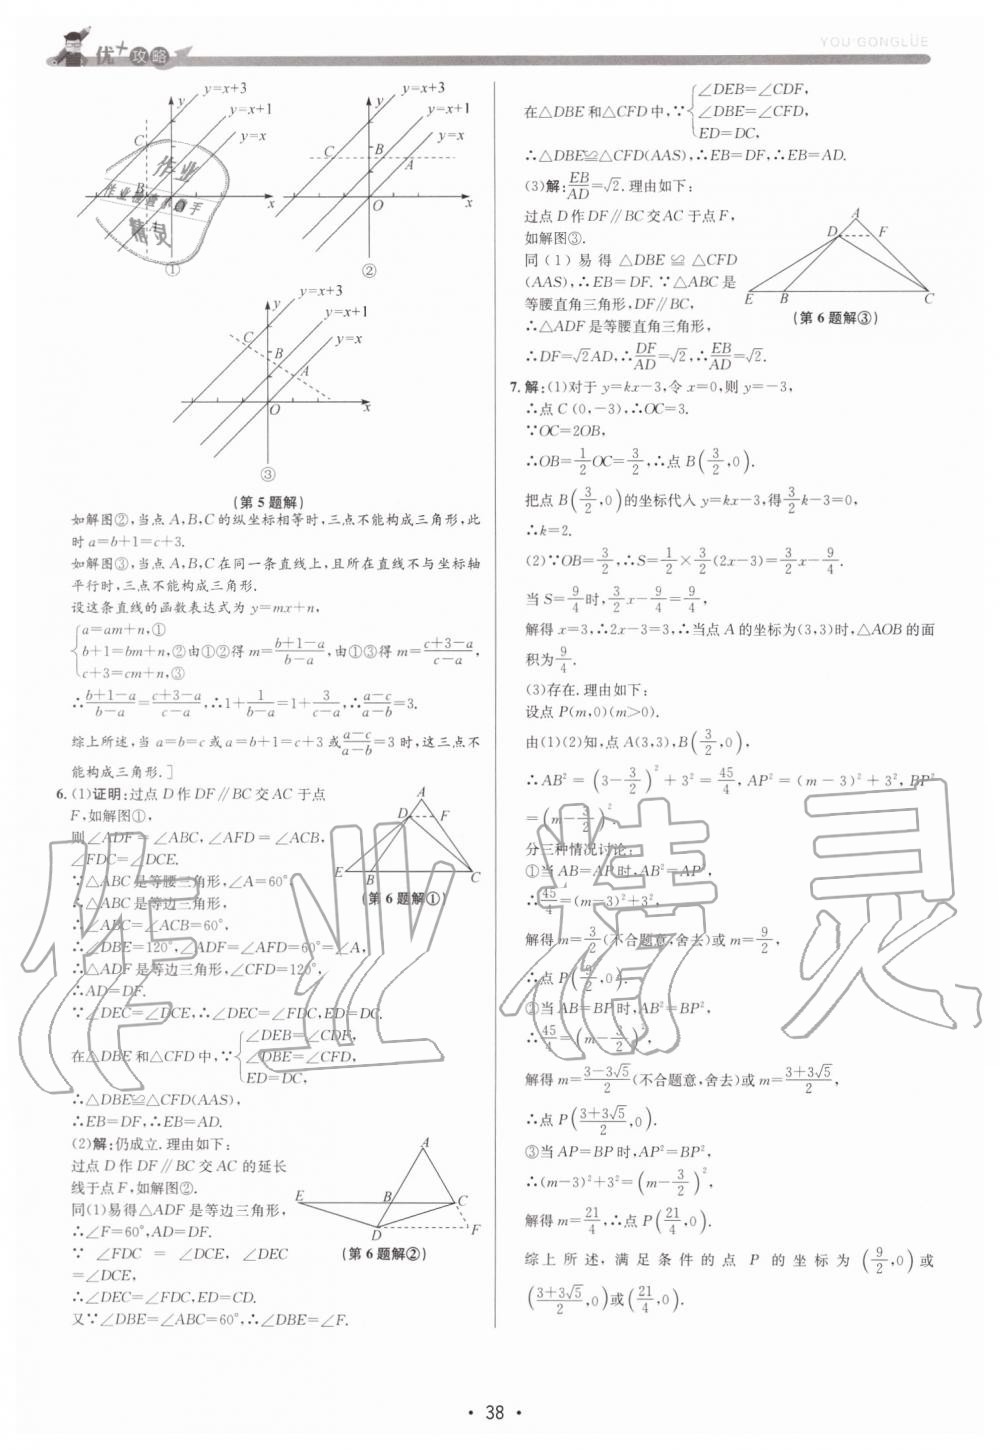 优+攻略
YOU GONGLÜE
y=x+3
y=x+1
y=x
①
y=x+3
y=x+1
y=x
②
y=x+3
y=x+1
y=x
③
(第5题解)
如解图②,当点A,B,C的纵坐标相等时,三点不能构成三角形,此
时a=b+1=c+3.
如解图③,当点A,B,C在同一条直线上,且所在直线不与坐标轴
平行时,三点不能构成三角形.
设这条直线的函数表达式为y=mx+n,
{a=am+n,①
b+1=bm+n,②由①②得m=(b+1-a)/(b-a),由①③得m=(c+3-a)/(c-a),
c+3=cm+n,③
∴(b+1-a)/(b-a)=(c+3-a)/(c-a),∴1+1/(b-a)=1+3/(c-a),∴(a-c)/(a-b)=3.
综上所述,当a=b=c或a=b+1=c+3或(a-c)/(a-b)=3时,这三点不
能构成三角形.]
6.(1)证明:过点D作DF∥BC交AC于点
F,如解图①,
则∠ADF=∠ABC,∠AFD=∠ACB,
∠FDC=∠DCE.
∵△ABC是等腰三角形,∠A=60°,
∴△ABC是等边三角形,
∴∠ABC=∠ACB=60°,
∴∠DBE=120°,∠ADF=∠AFD=60°=∠A,
∴△ADF是等边三角形,∠CFD=120°,
∴AD=DF.
∵∠DEC=∠DCE,∴∠DEC=∠FDC,ED=DC.
在△DBE和△CFD中,∵{∠DEB=∠CDF,
∠DBE=∠CFD,
ED=DC,
∴△DBE≌△CFD(AAS),
∴EB=DF,∴EB=AD.
(第6题解①)
(2)解:仍成立.理由如下:
过点D作DF∥BC交AC的延长
线于点F,如解图②.
同(1)易得△ADF是等边三角形,
∴∠F=60°,AD=DF.
∵ ∠FDC = ∠DCE, ∠DEC
=∠DCE,
∴∠DEC=∠FDC,ED=CD.
又∵∠DBE=∠ABC=60°,∴∠DBE=∠F.
(第6题解②)
在△DBE和△CFD中,∵{∠DEB=∠CDF,
∠DBE=∠CFD,
ED=DC,
∴△DBE≌△CFD(AAS),∴EB=DF,∴EB=AD.
(3)解:EB/AD=√2.理由如下:
过点D作DF∥BC交AC于点F,
如解图③.
同(1)易得△DBE≌△CFD
(AAS),∴EB=DF.∵△ABC是
等腰直角三角形,DF∥BC,
∴△ADF是等腰直角三角形,
∴DF=√2AD,∴DF/AD=√2,∴EB/AD=√2.
(第6题解③)
7.解:(1)对于y=kx-3,令x=0,则y=-3,
∴点C(0,-3),∴OC=3.
∵OC=2OB,
∴OB=1/2OC=3/2,∴点B(3/2,0).
把点B(3/2,0)的坐标代入y=kx-3,得3/2k-3=0,
∴k=2.
(2)∵OB=3/2,∴S=1/2×3/2(2x-3)=3/2x-9/4.
当S=9/4时,3/2x-9/4=9/4,
解得x=3,∴2x-3=3,∴当点A的坐标为(3,3)时,△AOB的面
积为9/4.
(3)存在.理由如下:
设点P(m,0)(m>0).
由(1)(2)知,点A(3,3),B(3/2,0),
∴AB²=(3-3/2)²+3²=45/4,AP²=(m-3)²+3²,BP²
=(m-3/2)².
分三种情况讨论:
①当AB=AP时,AB²=AP²,
∴45/4=(m-3)²+3²,
解得m=3/2(不合题意,舍去)或m=9/2,
∴点P(9/2,0).
②当AB=BP时,AB²=BP²,
∴45/4=(m-3/2)²,
解得m=(3-3√5)/2(不合题意,舍去)或m=(3+3√5)/2,
∴点P((3+3√5)/2,0).
③当AP=BP时,AP²=BP²,
∴(m-3)²+3²=(m-3/2)²,
解得m=21/4,∴点P(21/4,0).
综上所述,满足条件的点P的坐标为(9/2,0)或
((3+3√5)/2,0)或(21/4,0).
作业精灵
· 38 ·